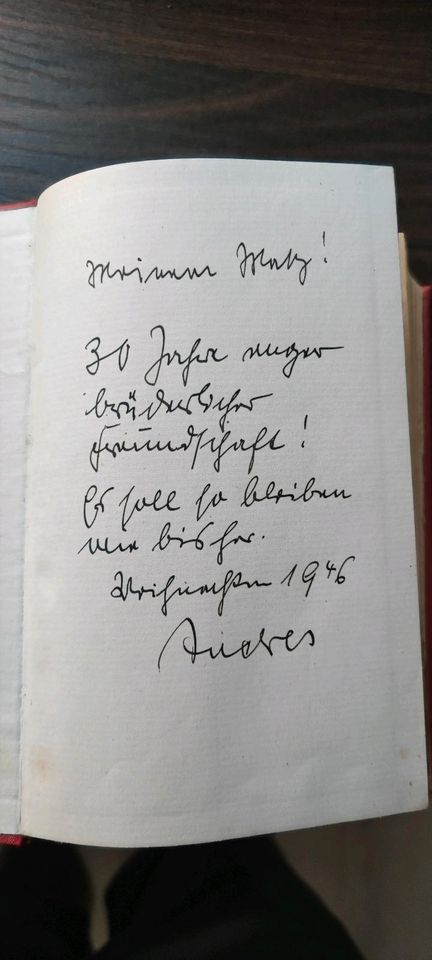 Meinem Matz!
30 Jahre enger
brüderlicher
Freundschaft!
Es soll so bleiben
wie bisher.
Weihnachten 1946
Andres